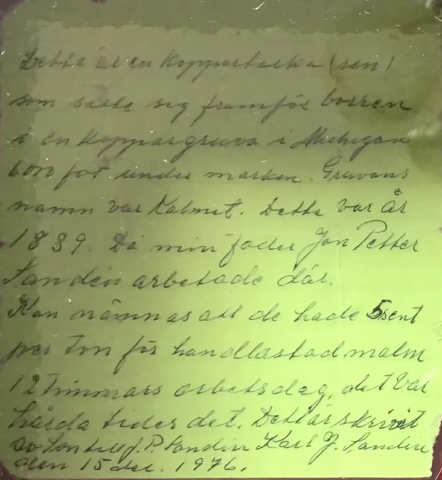 Detta är en Kopparbacka (ren)
som satte sig framför borren
i en Koppargruva i Michigan
6000 fot under marken. Gruvans
namn var Kalmet. Detta var år
1889. Då min fader Jon Petter
Sandin arbetade där.
Kan nämnas att de hade 5 sent
per ton för handlastad malm
12 timmars arbetsdag, det var
hårda tider det. Detta är skrivit
av Son till J. P. Sandin Karl J. Sandin
den 15 dec. 1976.